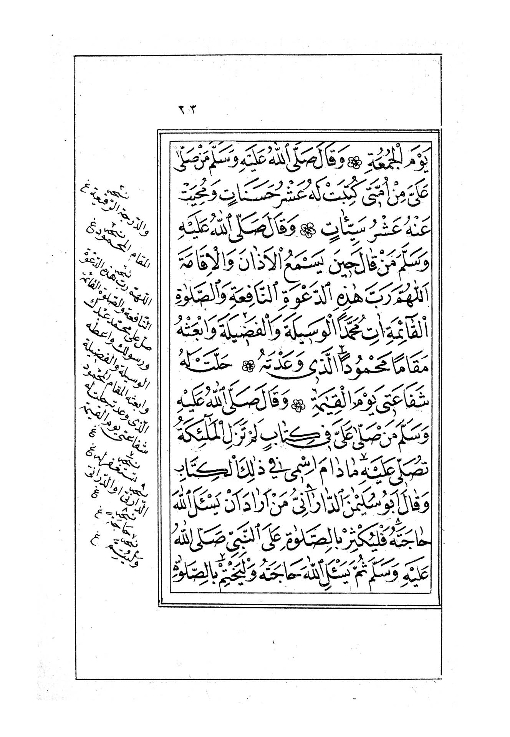 ٢٣
يَوْمَ الْجُمُعَةِ ۞ وَقَالَ صَلَّى اللهُ عَلَيْهِ وَسَلَّمَ مَنْ صَلَّى
عَلَيَّ مِنْ أُمَّتِي كُتِبَتْ لَهُ عَشْرُ حَسَنَاتٍ وَمُحِيَتْ
عَنْهُ عَشْرُ سَيِّئَاتٍ ۞ وَقَالَ صَلَّى اللهُ عَلَيْهِ
وَسَلَّمَ مَنْ قَالَ حِينَ يَسْمَعُ الْأَذَانَ وَالْإِقَامَةَ
اَللّٰهُمَّ رَبَّ هٰذِهِ الدَّعْوَةِ النَّافِعَةِ وَالصَّلٰوةِ
الْقَآئِمَةِ اٰتِ مُحَمَّدًا الْوَسِيلَةَ وَالْفَضِيلَةَ وَابْعَثْهُ
مَقَامًا مَحْمُودًا الَّذِي وَعَدْتَهُ ۞ حَلَّتْ لَهُ
شَفَاعَتِي يَوْمَ الْقِيٰمَةِ ۞ وَقَالَ صَلَّى اللهُ عَلَيْهِ
وَسَلَّمَ مَنْ صَلَّى عَلَيَّ فِي كِتَابٍ لَمْ تَزَلِ الْمَلٰٓئِكَةُ
تُصَلِّي عَلَيْهِ مَا دَامَ اسْمِي فِي ذٰلِكَ الْكِتَابِ
وَقَالَ اَبُو سُلَيْمٰنَ الدَّارَانِيُّ مَنْ اَرَادَ اَنْ يَسْئَلَ اللهَ
حَاجَتَهُ فَلْيُكْثِرْ بِالصَّلٰوةِ عَلَى النَّبِيِّ صَلَّى اللهُ
عَلَيْهِ وَسَلَّمَ ثُمَّ يَسْئَلِ اللهَ حَاجَتَهُ وَلْيَخْتِمْ بِالصَّلٰوةِ
والدرجة الرفيعة
المقام المحمود
اللهم رب هذه الدعوة
النافعة والصلوة القائمة
صل على محمد عبدك
ورسولك واعطه
الوسيلة والفضيلة
وابعثه المقام المحمود
الذي وعدته حلت له
شفاعتي يوم القيمة
تستغفر له
حاجة